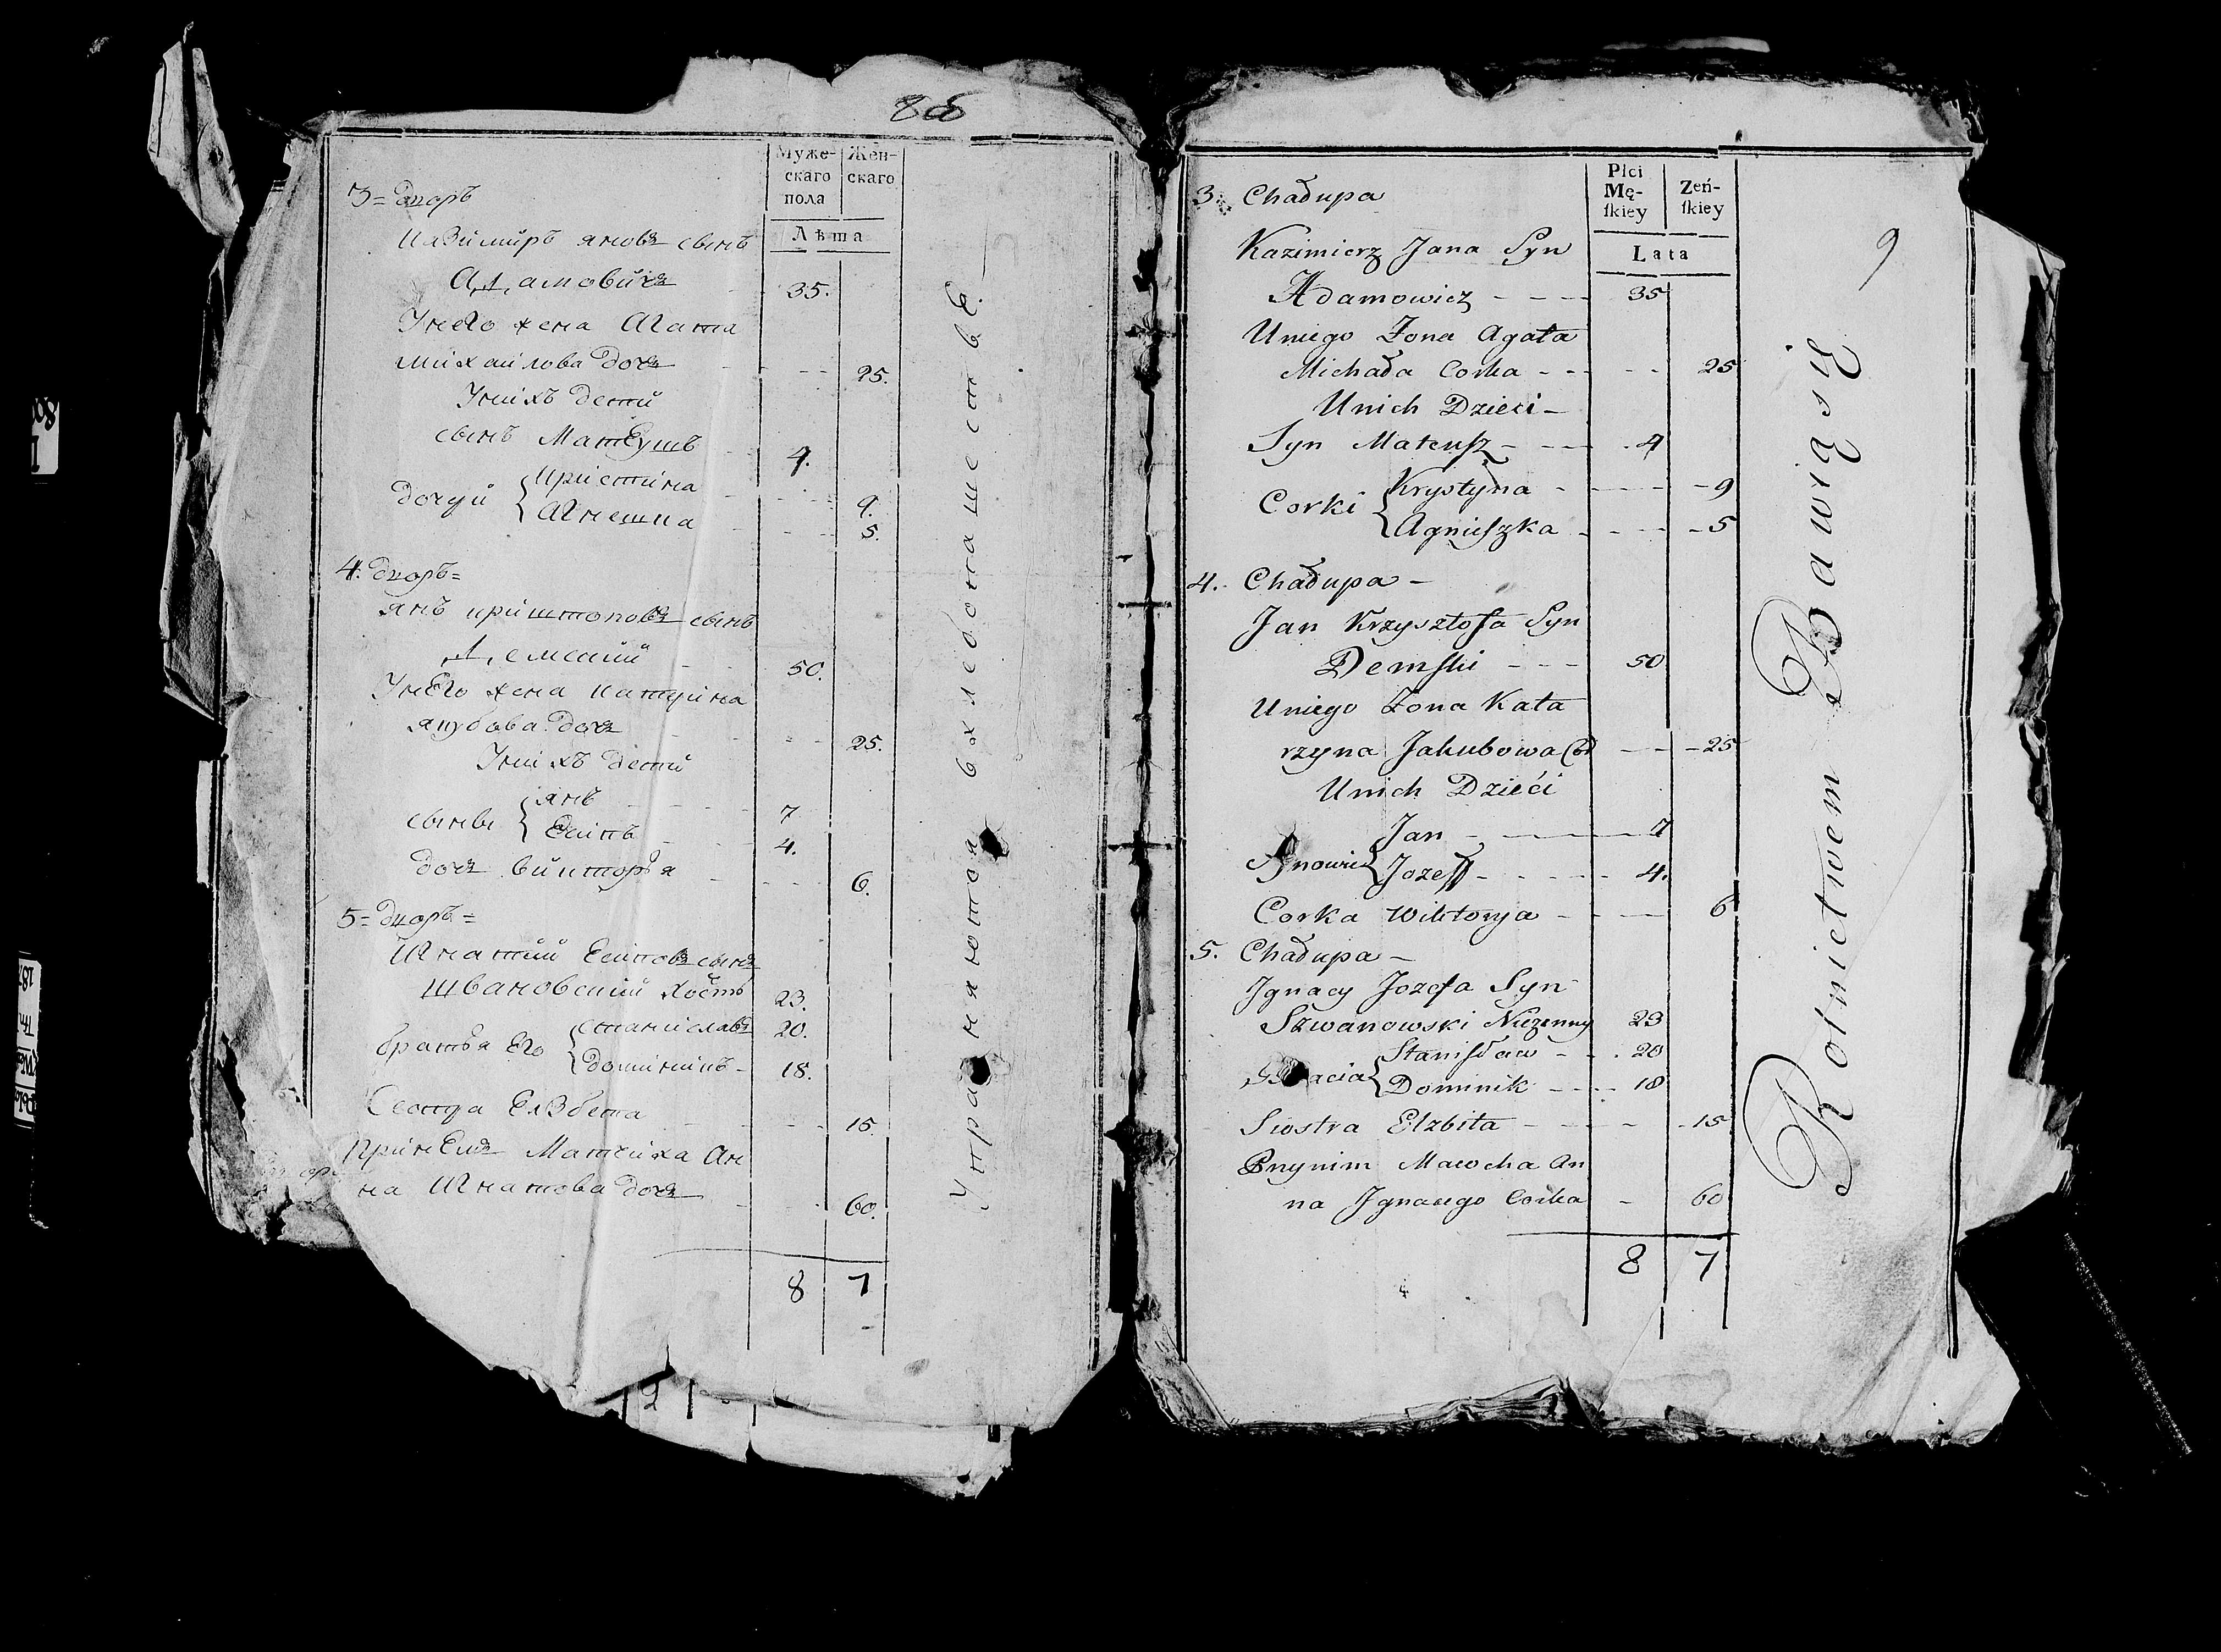 8об
Муже-
скаго
пола
Жен-
скаго
Лѣта
3= дворъ
Казимиръ яновъ сынъ
Адамовичъ 35.
Унего жена Агата
михаилова дочь 25.
Унихъ дети
сынъ Матеушъ 4.
дочери
Кристина 9.
Агнешка 5.
4: дворъ=
янъ криштоповъ сынъ
Демский 50.
Унего жена катерина
якубова дочь 25.
Унихъ дети
сыны
янъ 7
Есипъ 4.
дочь викторья 6.
5= дворъ=
Игнатий Есиповъ сынъ
Швановский холостъ 23.
братья Его
станиславъ 20.
доминикъ 18.
Сестра Елзбета 15.
При немъ Матчиха Ан
на Игнатова дочь 60.
8 7
Упражняются в хлебопашестве.
9
Płci
Mę-
ſkiey
Zeń-
ſkiey
Lata
3. Chałupa
Kazimierz Jana Syn
Adamowicz 35
Uniego Zona Agata
Michała Corka 25
Unich Dzieci
Syn Mateuſz 4
Corki
Krystyna 9
Agnieſzka 5
4. Chałupa
Jan Krzysztofa Syn
Demſki 50
Uniego Zona Kata
rzyna Jakubowa Cor 25
Unich Dzieći
Synowie
Jan 7
Jozeff 4.
Corka Wiktorya 6
5. Chałupa
Jgnacy Jozefa Syn
Szwanowski Niezenny 23
Bracia
Staniſław 20
Dominik 18
Siostra Elzbita 15
Przynim Macocha An
na Jgnacego Corka 60
8 7
Rolnictwem Bawią się